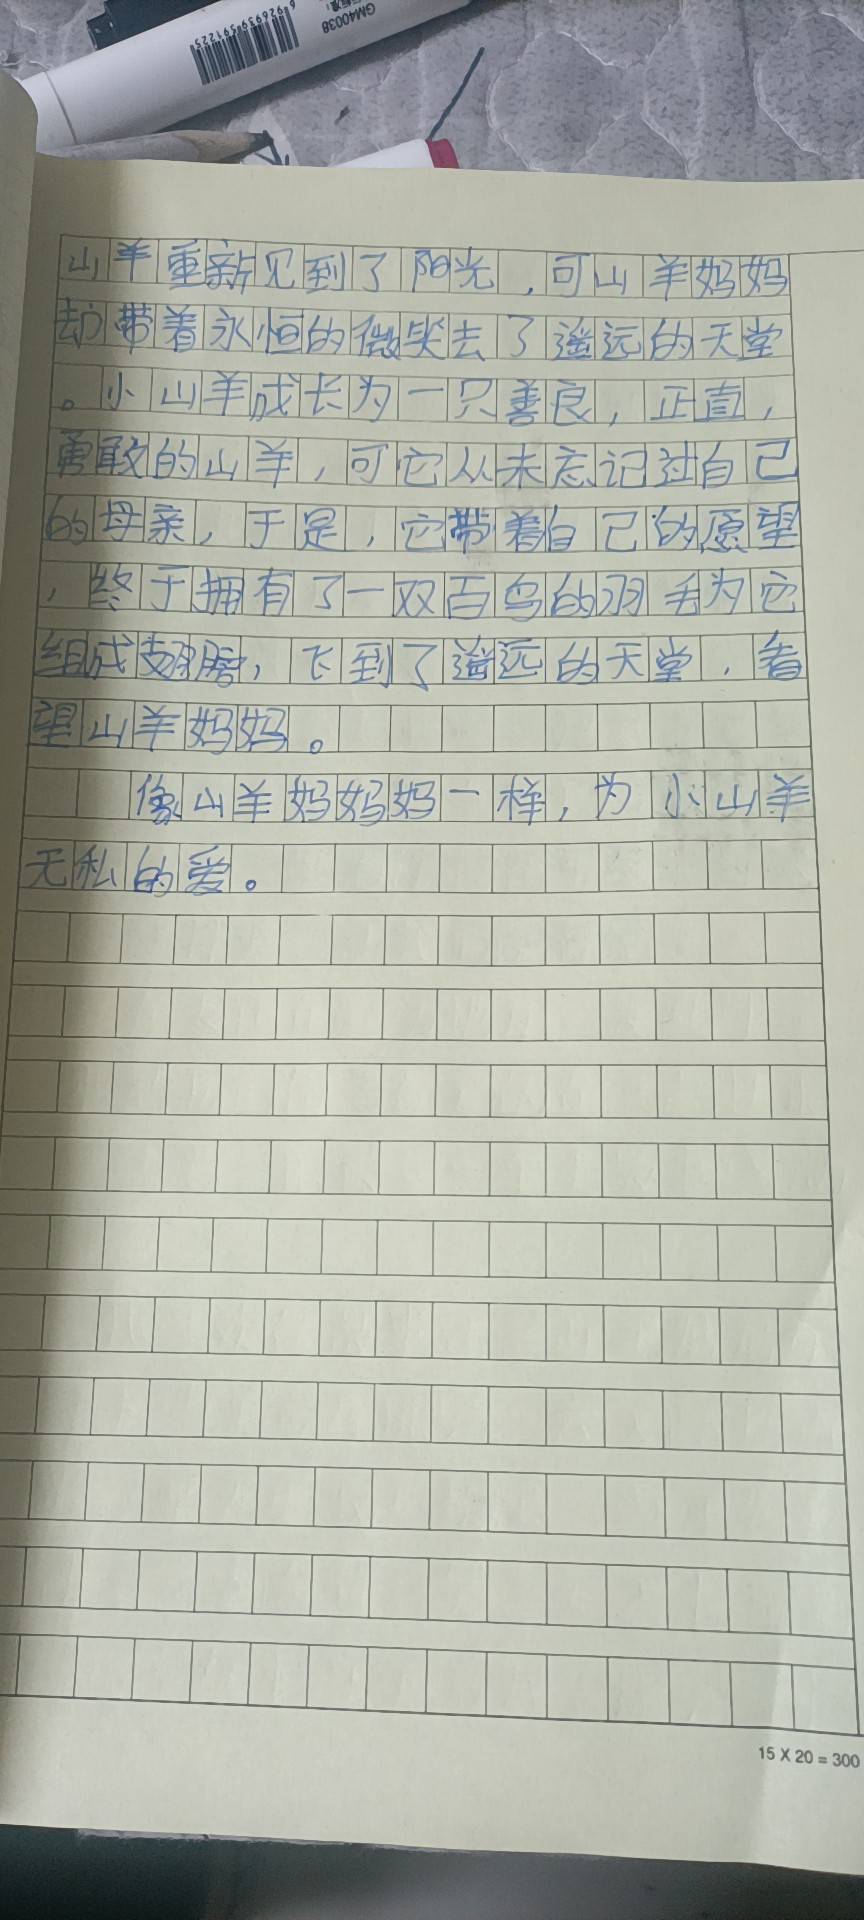 6926939591225
GM40038
山羊重新见到了阳光，可山羊妈妈
却带着永恒的微笑去了遥远的天堂
。小山羊成长为一只善良，正直，
勇敢的山羊，可它从未忘记过自己
的母亲，于是，它带着自己的愿望
，终于拥有了一双百鸟的羽毛为它
组成翅膀，飞到了遥远的天堂，看
望山羊妈妈。
像山羊妈妈妈一样，为小山羊
无私的爱。
15 X 20 = 300